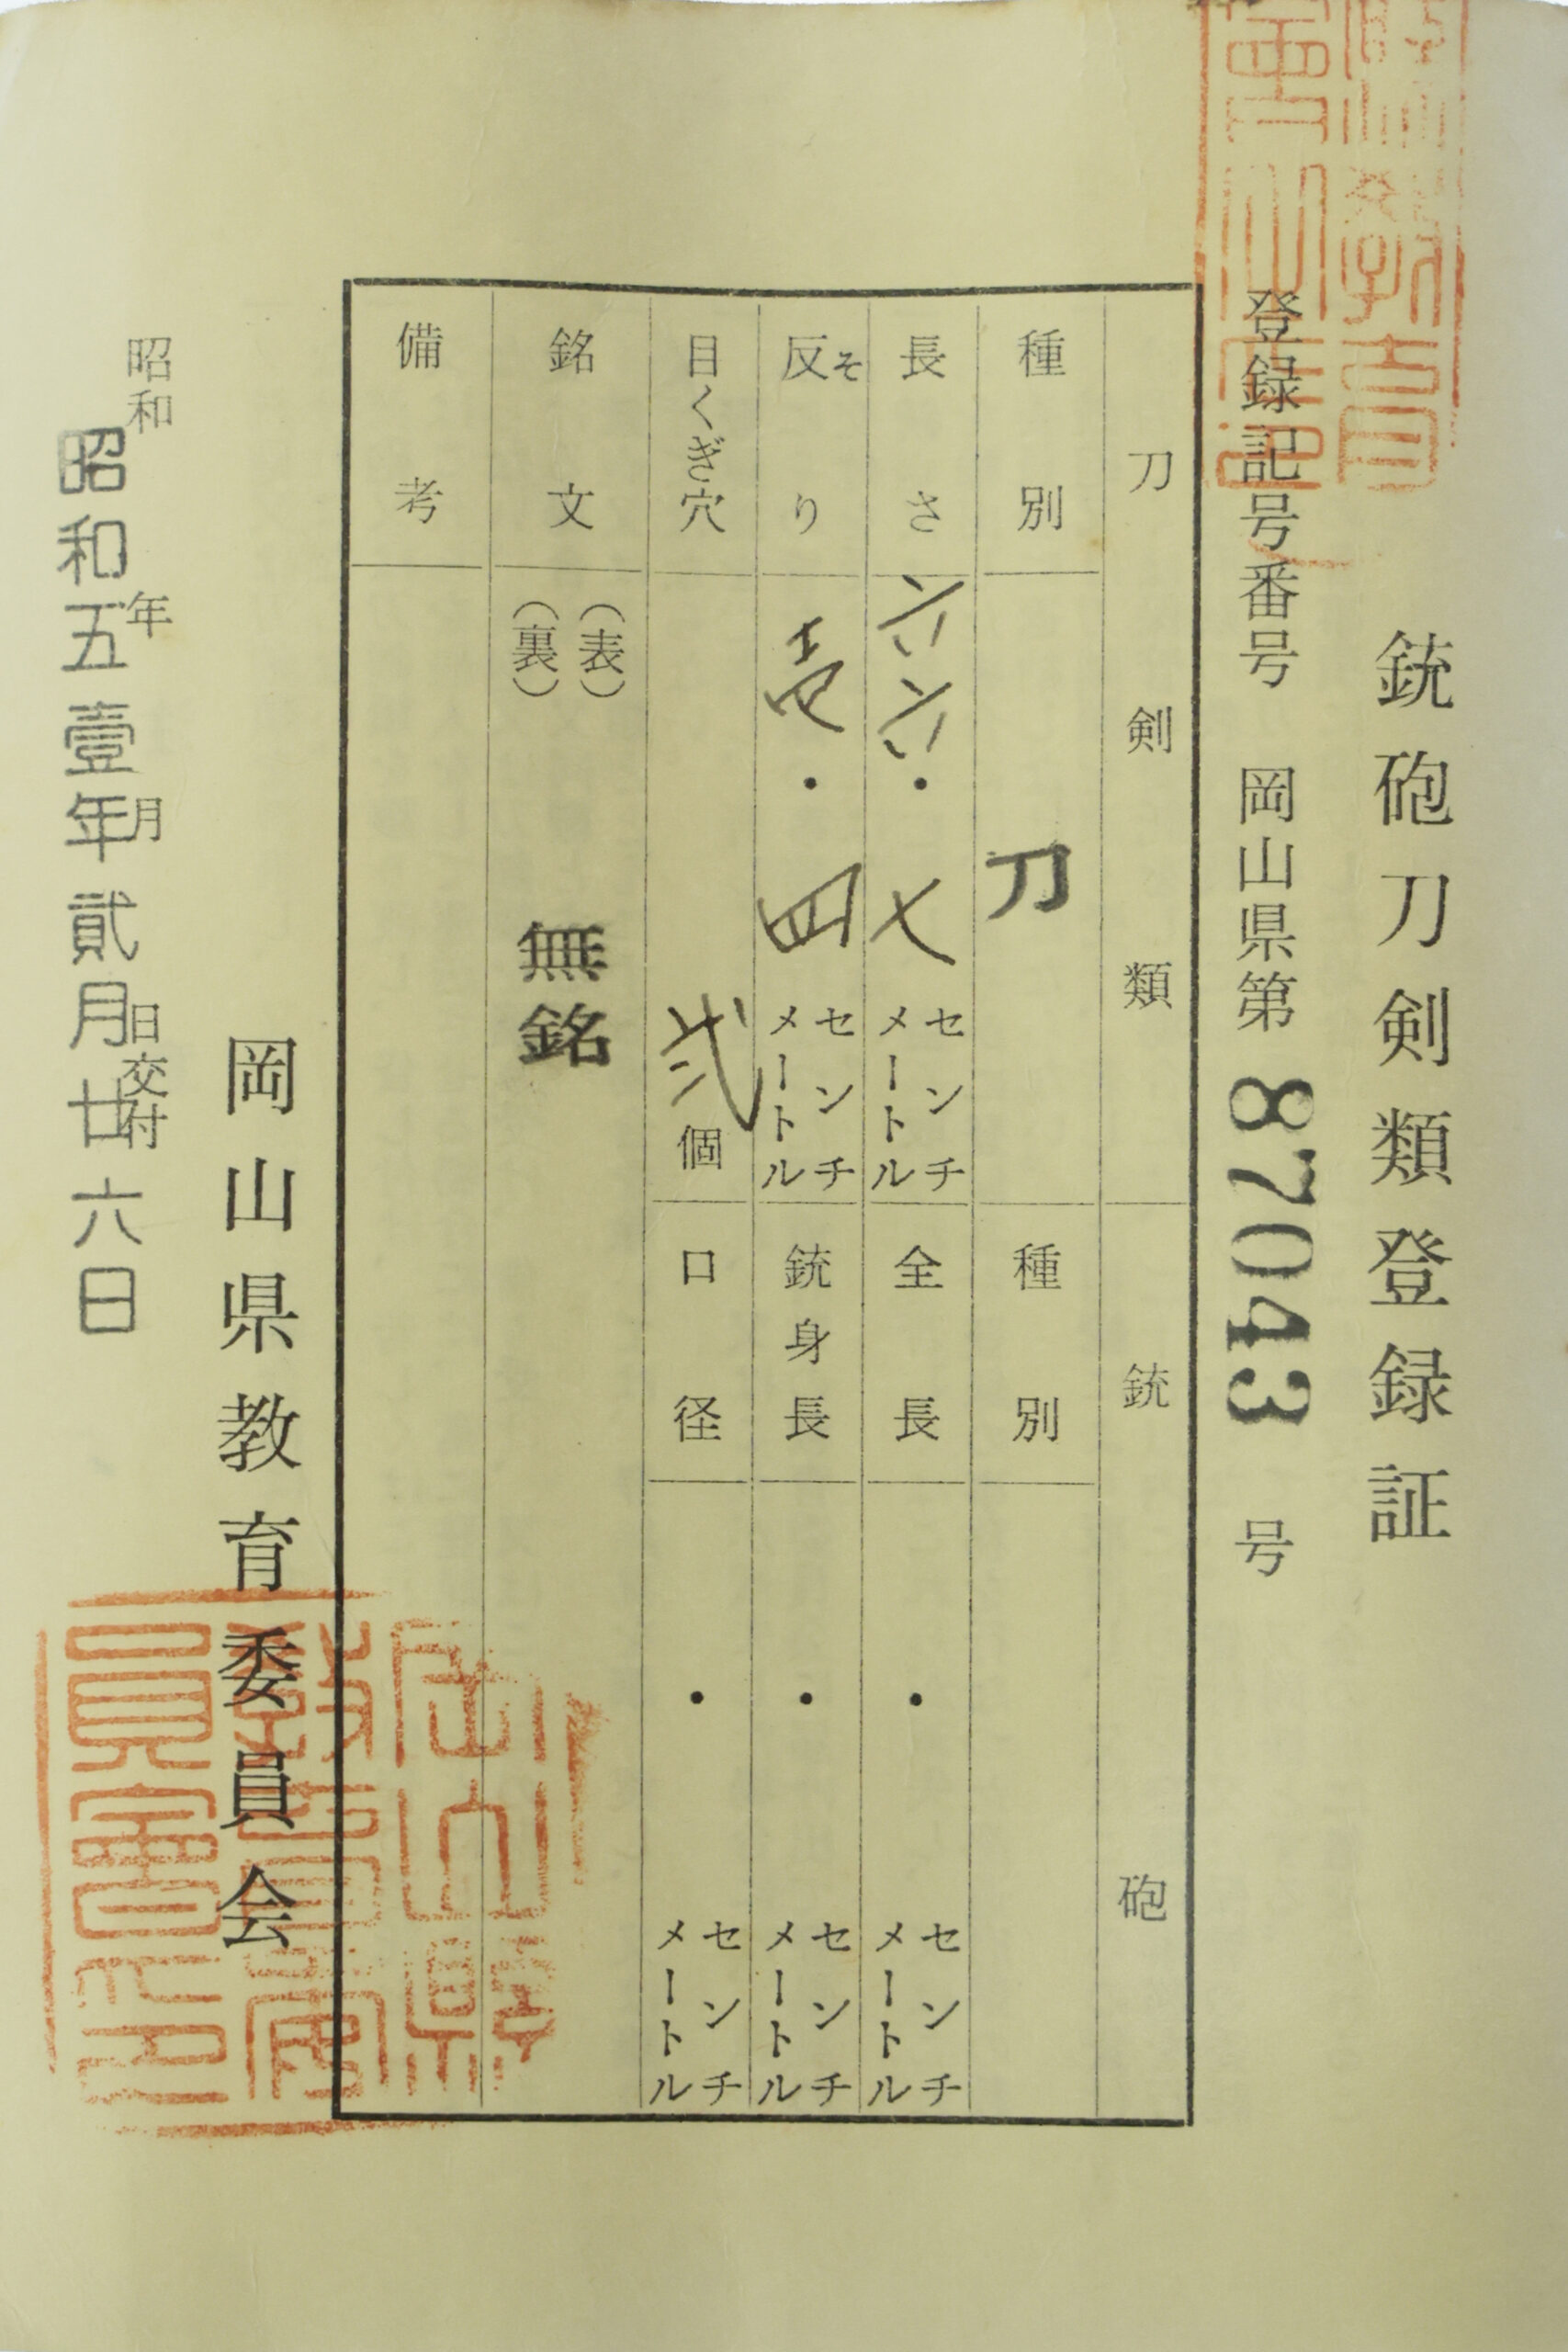 銃砲刀剣類登録証
登録記号番号 岡山県第 87043 号
刀剣類
銃砲
種別 刀
種別
長さ 六六・七 センチメートル
全長 ・ センチメートル
反り そ 壱・四 センチメートル
銃身長 ・ センチメートル
目くぎ穴 弐個
口径 ・ センチメートル
銘文 (表)
(裏)
無銘
備考
岡山県教育委員会
昭和 年 月 日交付
昭和五壹年貳月廿六日
岡山縣
教育委
員會印